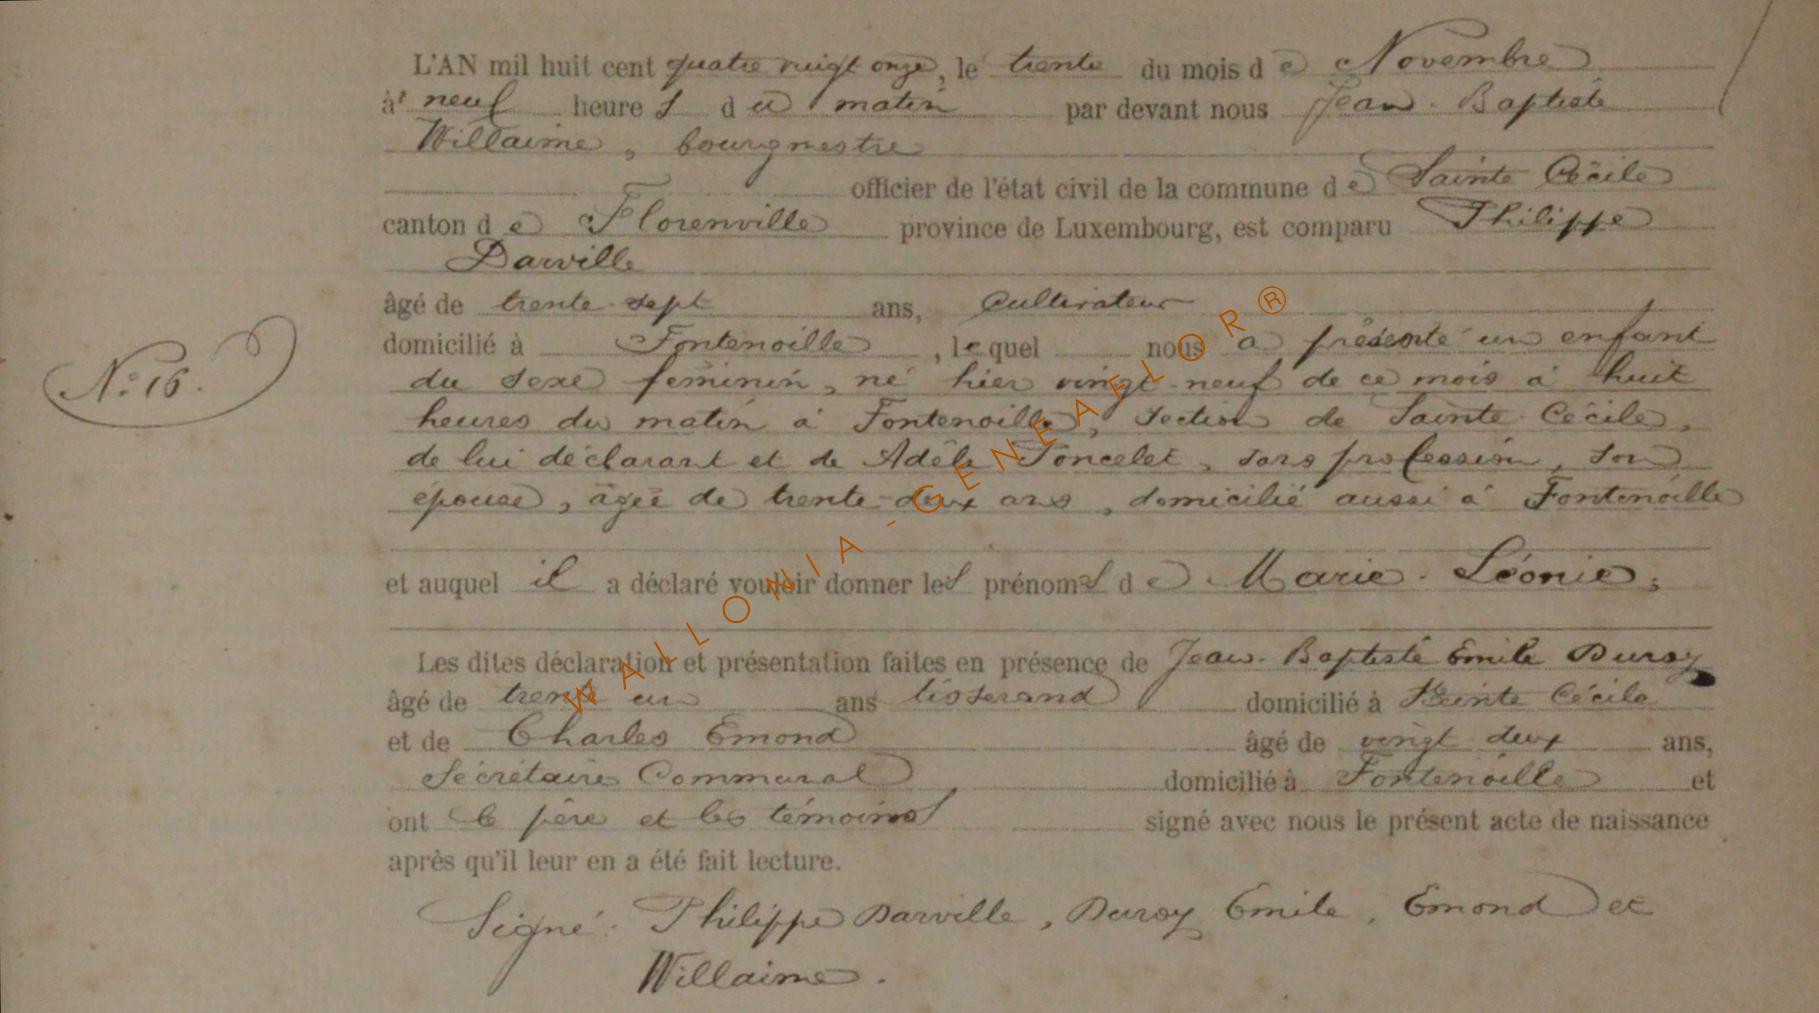 L'AN mil huit cent quatre vingt onze, le trente du mois de Novembre
à neuf heures du matin par devant nous Jean-Baptiste
Willaime, bourgmestre
officier de l'état civil de la commune de Sainte Cécile
canton de Florenville province de Luxembourg, est comparu Philippe
Darville
âgé de trente-sept ans, Cultivateur
domicilié à Fontenoille, lequel nous a présenté un enfant
du sexe féminin, né hier vingt-neuf de ce mois à huit
heures du matin à Fontenoille, section de Sainte Cécile,
de lui déclarant et de Adèle Poncelet, sans profession, son
épouse, âgée de trente-deux ans, domicilié aussi à Fontenoille
N° 16.
et auquel il a déclaré vouloir donner les prénoms de Marie-Léonie;
Les dites déclaration et présentation faites en présence de Jean-Baptiste Emile Duroy
âgé de trente un ans tisserand domicilié à Sainte Cécile
et de Charles Emond âgé de vingt deux ans,
Secrétaire Communal domicilié à Fontenoille et
ont le père et les témoins signé avec nous le présent acte de naissance
après qu'il leur en a été fait lecture.
Signé: Philippe Darville, Duroy Emile, Emond et
Willaime.
WALLONIA-GENEAFLOR®